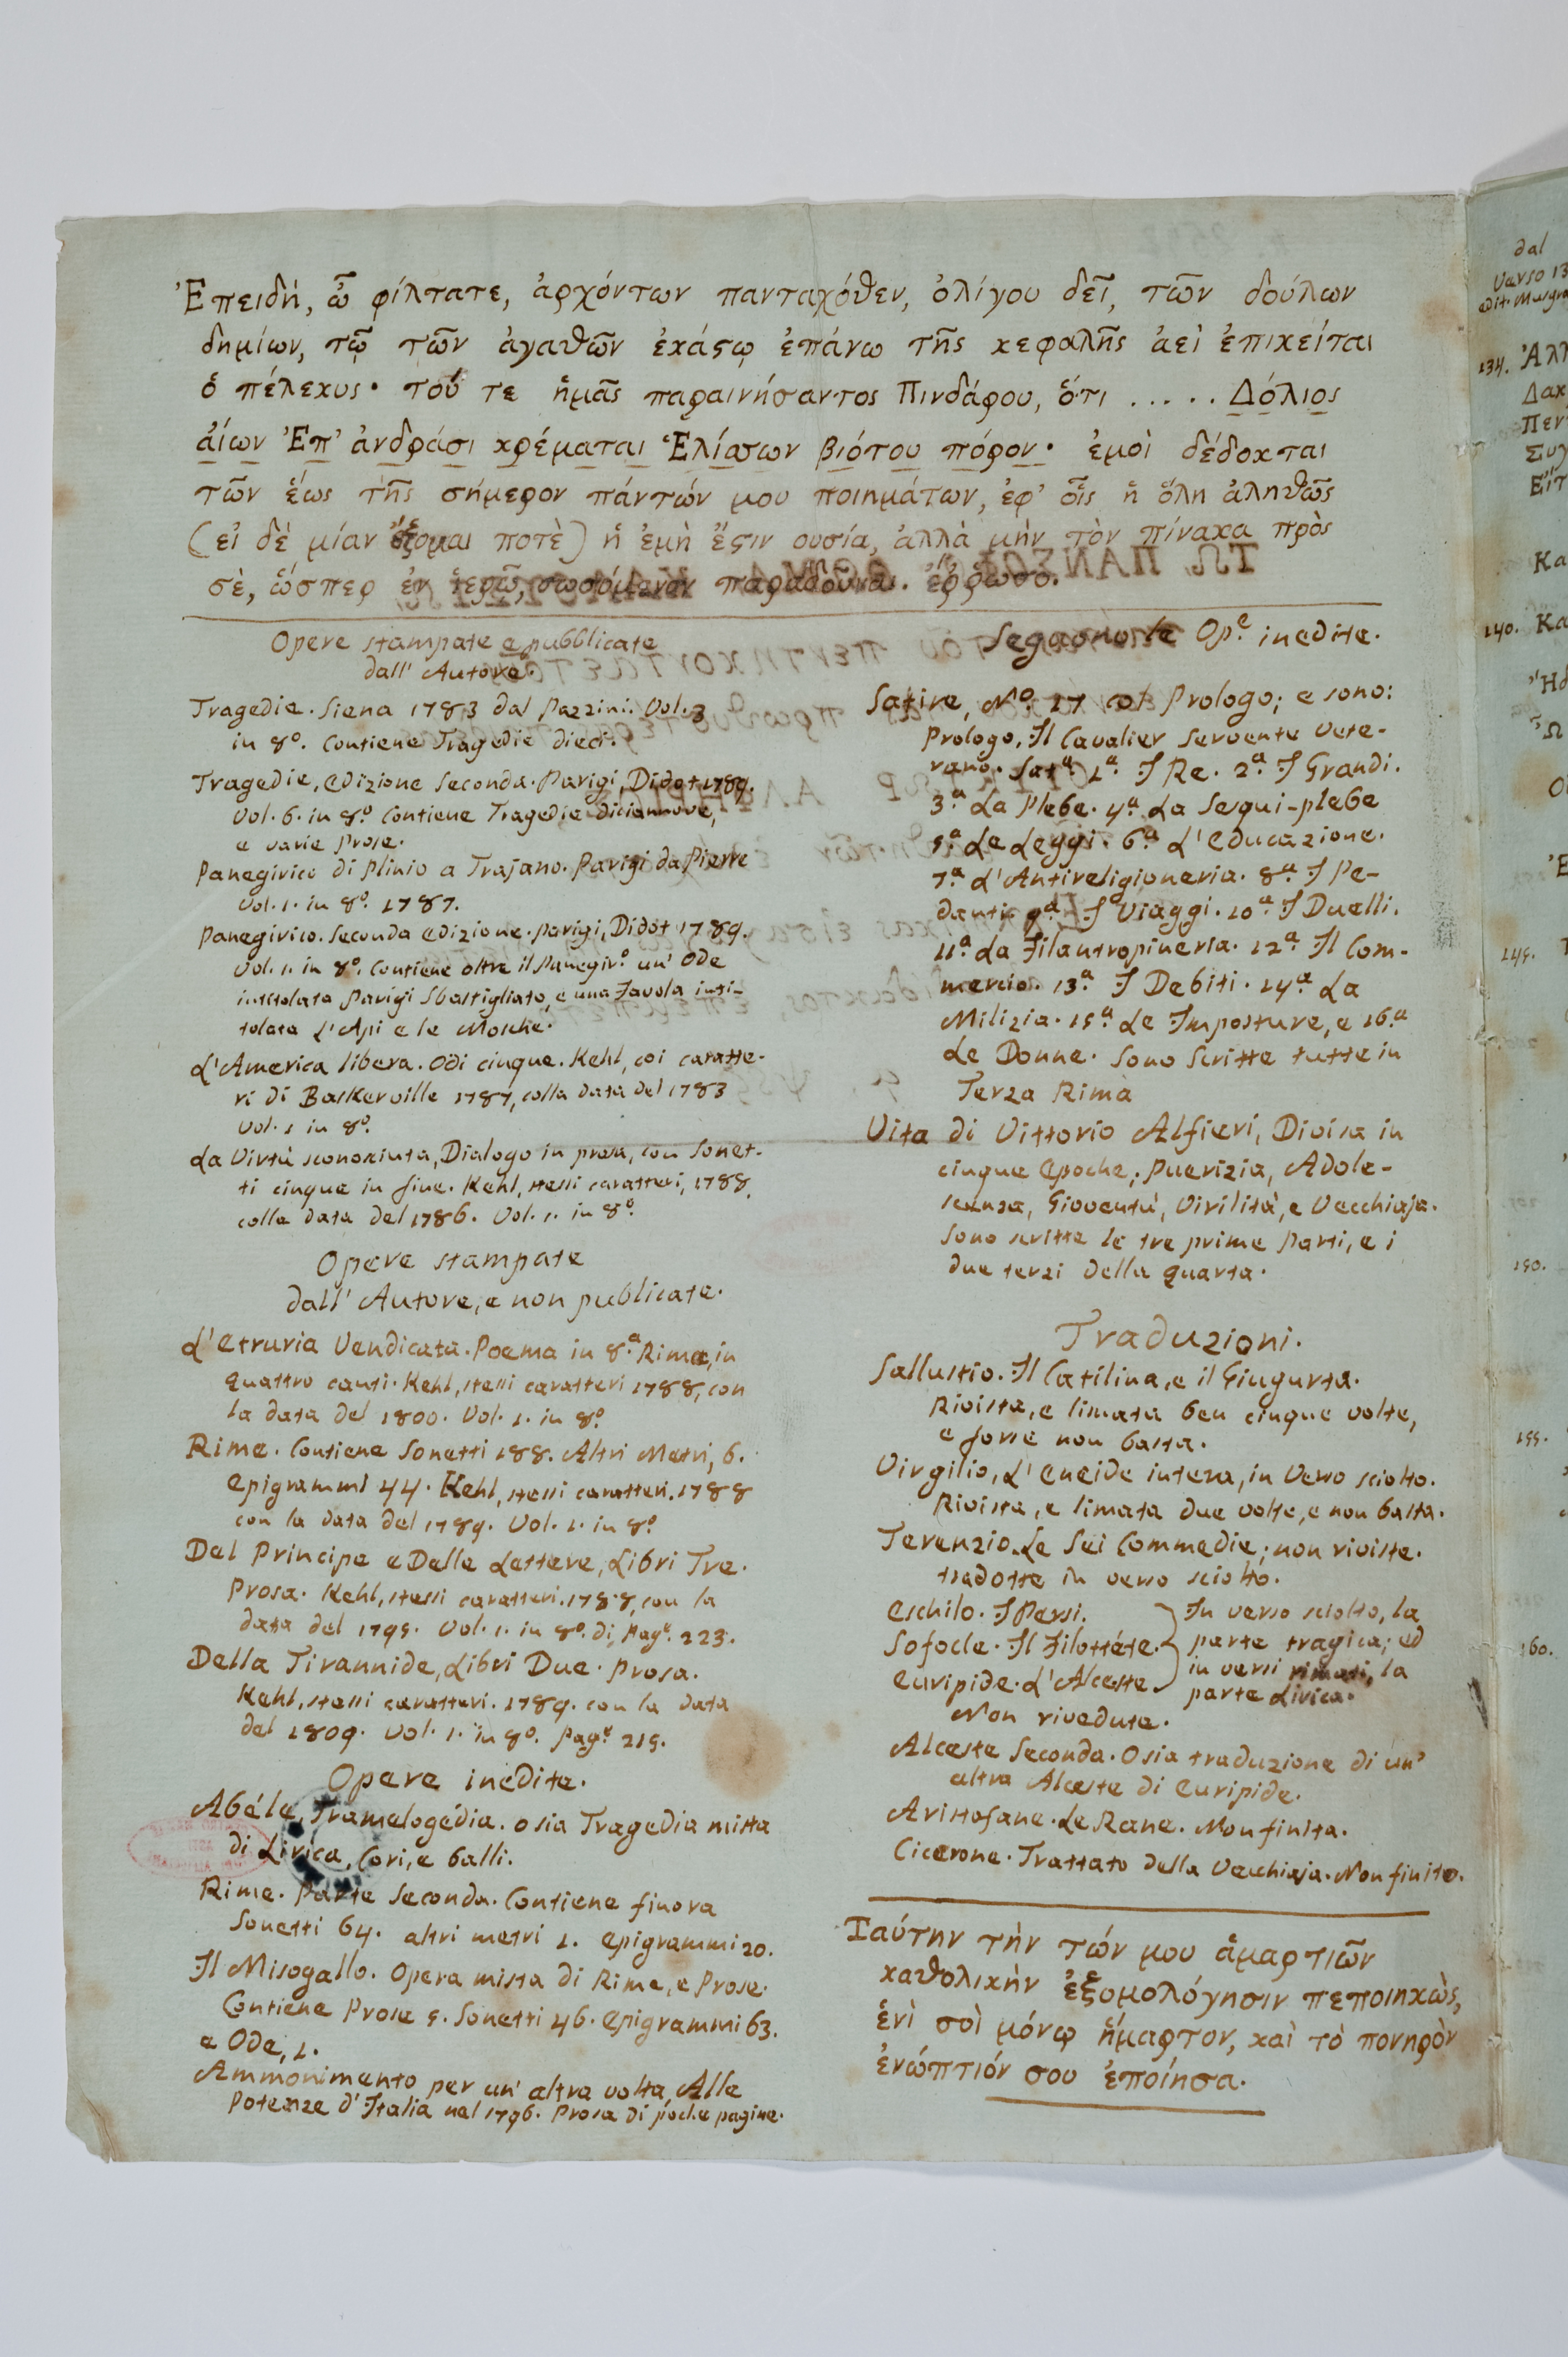 Ἐπειδή, ὦ φίλτατε, ἀρχόντων πανταχόθεν, ὀλίγου δεῖ, τῶν δούλων
δημίων, τῷ τῶν ἀγαθῶν ἑκάστῳ ἐπάνω τῆς κεφαλῆς ἀεὶ ἐπικείται
ὁ πέλεκυς· τοῦ τε ἡμᾶς παραινήσαντος Πινδάρου, ὅτι ..... Δόλιος
ἀίων Ἐπ' ἀνδράσι κρέμαται Ἑλίσσων βιότου πόρον· ἐμοὶ δέδοκται
τῶν ἕως τῆς σήμερον πάντών μου ποιημάτων, ἐφ' οἷς ἡ ὅλη ἀληθῶς
(εἰ δέ μίαν ἕξομαι ποτὲ) ἡ ἐμὴ ἔστιν ουσία, ἀλλὰ μὴν τὸν πίνακα πρὸς
σὲ, ὥσπερ ἐν ἱερῷ, σωσόμενον παραδοῦναι. ἔρρωσο.
Opere stampate e pubblicate
dall' Autore.
Tragedie. Siena 1783 dal Pazzini. Vol. 3
in 8º. Contiene Tragedie dieci.
Tragedie, Edizione Seconda. Parigi, Didot 1789.
Vol. 6. in 8º. Contiene Tragedie diciannove,
e varie Prose.
Panegirico di Plinio a Trajano. Parigi da Pierre
Vol. 1. in 8º. 1787.
Panegirico. Seconda Edizione. Parigi, Didot 1789.
Vol. 1. in 8º. Contiene oltre il Panegir.º un' Ode
intitolata Parigi Sbastigliato, e una Favola inti-
tolata L'Api e le Mosche.
L'America libera. Odi cinque. Kehl, coi caratte-
ri di Baskerville 1787, colla data del 1783
Vol. 1 in 8º.
La Virtù sconosciuta, Dialogo in prosa, con Sonet-
ti cinque in fine. Kehl, stessi caratteri, 1788,
colla data del 1786. Vol. 1. in 8º.
Opere stampate
dall' Autore, e non publicate.
L'Etruria Vendicata. Poema in 8.ª Rima, in
quattro canti. Kehl, stessi caratteri 1788, con
la data del 1800. Vol. 1. in 8º
Rime. Contiene Sonetti 188. Altri Metri, 6.
Epigrammi 44. Kehl, stessi caratteri. 1788
con la data del 1789. Vol. 1. in 8º
Del Principe e Delle Lettere, Libri Tre.
Prosa. Kehl, stessi caratteri. 1788, con la
data del 1795. Vol. 1. in 8º. di, Pag.e 223.
Della Tirannide, Libri Due. Prosa.
Kehl, stessi caratteri. 1789. con la data
del 1809. Vol. 1. in 8º. Pag.e 215.
Opere inedite.
Abéle, Tramelogédia. o sia Tragedia mista
di Lirica, Cori, e balli.
Rime. Parte Seconda. Contiene finora
Sonetti 64. altri metri 1. Epigrammi 20.
Il Misogallo. Opera mista di Rime, e Prose.
Contiene Prose 5. Sonetti 46. Epigrammi 63.
e Ode, 1.
Ammonimento per un' altra volta, Alle
Potenze d'Italia nel 1796. Prosa di poche pagine.
Seguono le Op.e inedite.
Satire, Nº. 17 col Prologo; e sono:
Prologo, Il Cavalier Servente Vete-
rano. Sat.ª 1.ª I Re. 2.ª I Grandi.
3.ª La Plebe. 4.ª La Sesqui-plebe
5.ª Le Leggi. 6.ª L'Educazione.
7.ª L'Antireligioneria. 8.ª I Pe-
danti. 9.ª I Viaggi. 10.ª I Duelli.
11.ª La Filantropineria. 12.ª Il Com-
mercio. 13.ª I Debiti. 14.ª La
Milizia. 15.ª Le Imposture, e 16.ª
Le Donne. Sono Scritte tutte in
Terza Rima
Vita di Vittorio Alfieri, Divisa in
cinque Epoche; Puerizia, Adole-
scenza, Gioventù, Virilità, e Vecchiaja.
Sono scritte le tre prime Parti, e i
due terzi della quarta.
Traduzioni.
Sallustio. Il Catilina, e il Giugurta.
Rivista, e limata ben cinque volte,
e forse non basta.
Virgilio, L'Eneide intera, in Verso sciolto.
Rivista, e limata due volte, e non basta.
Terenzio. Le Sei Commedie; non riviste.
tradotte in verso sciolto.
Eschilo. I Persi.
Sofocle. Il Filottéte.
Euripide. L'Alceste.
In verso sciolto, la
parte tragica; ed
in versi rimati, la
parte Lirica.
Non rivedute.
Alceste Seconda. O sia traduzione di un'
altra Alceste di Euripide.
Aristofane. Le Rane. Non finita.
Cicerone. Trattato della Vecchiaja. Non finito.
Ταύτην τὴν τών μου ἁμαρτιῶν
καθολικὴν ἐξομολόγησιν πεποιηκὼς,
ἑνὶ σοὶ μόνῳ ἥμαρτον, καὶ τὸ πονηρὸν
ἐνώπτιόν σου ἐποίησα.
dal
Verso 13
134. Ἀλλ
Δακ
Περ
Συγ
Εἴτ
Κα
140. Κα
145.
150.
155.
160.